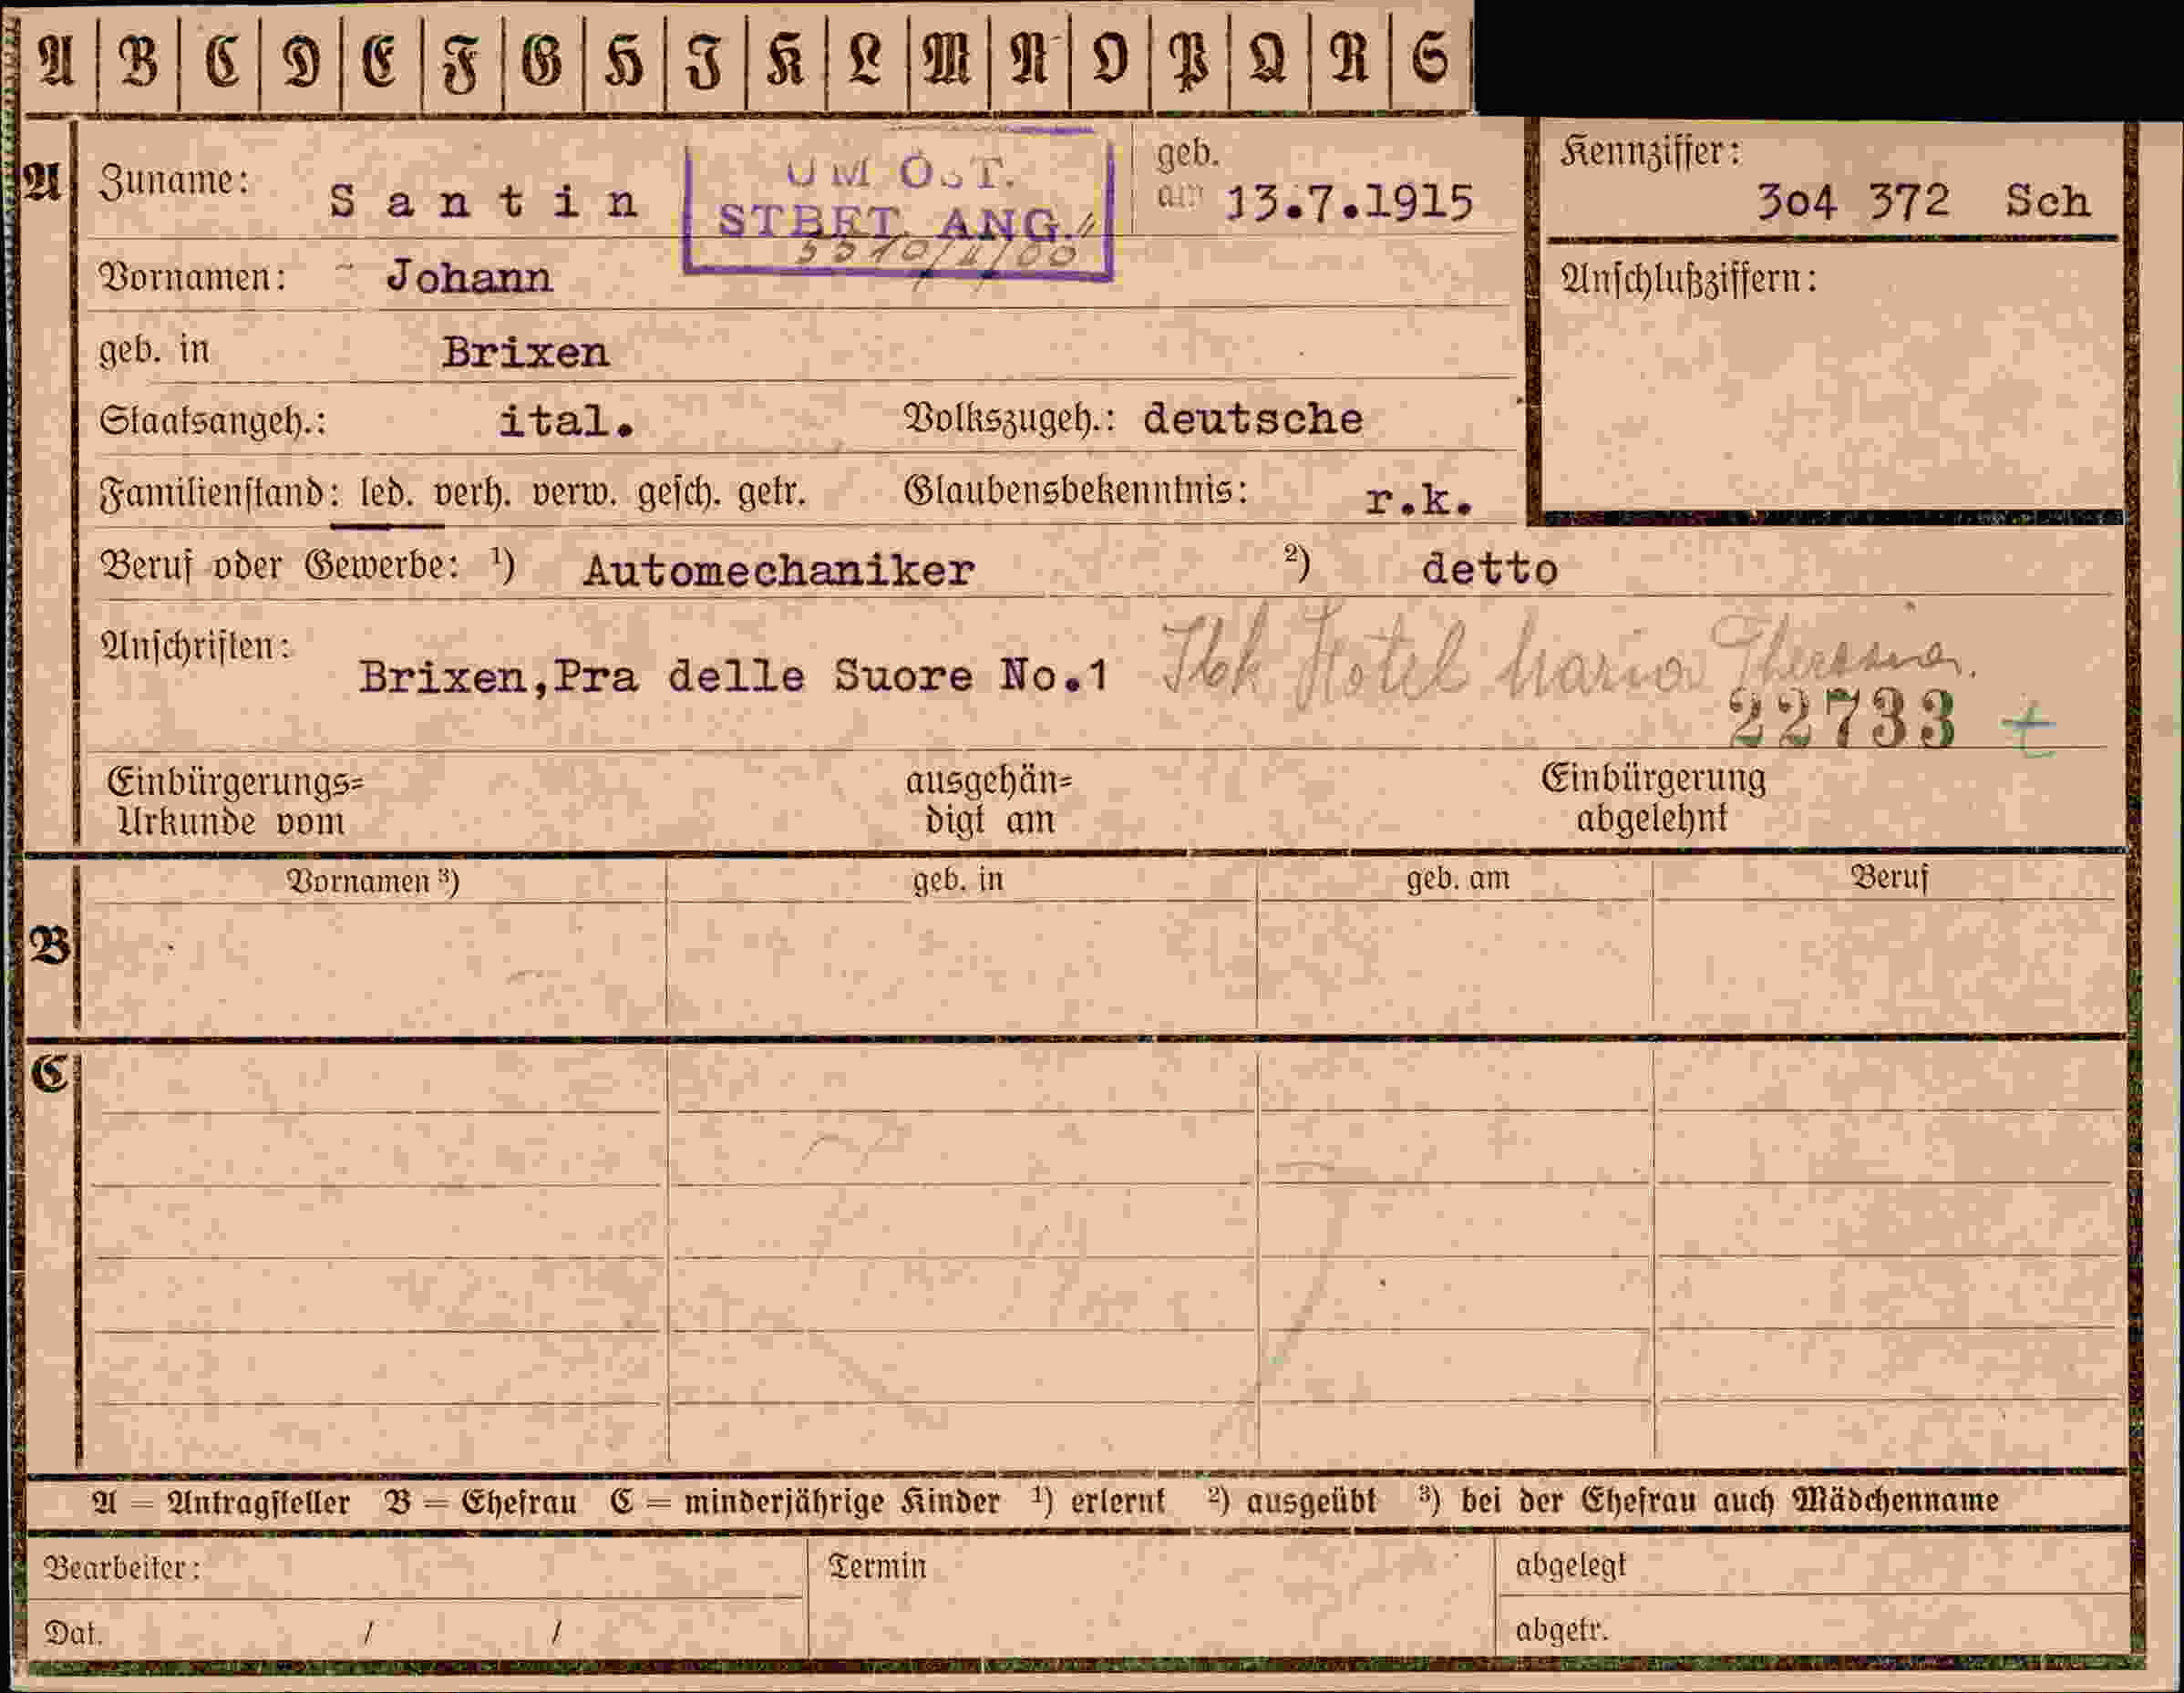 A B C D E F G H I K L M N O P Q R S
A Zuname: Santin UM ÖST. STBET. ANG. geb. am 13.7.1915 Kennziffer: 304 372 Sch
Vornamen: Johann Anschlußziffern:
geb. in Brixen
Staatsangeh.: ital. Volkszugeh.: deutsche
Familienstand: led. verh. verw. gesch. getr. Glaubensbekenntnis: r.k.
Beruf oder Gewerbe: 1) Automechaniker 2) detto
Anschriften: Brixen,Pra delle Suore No.1 Ibk Hotel Maria Theresia.
22733
Einbürgerungs= ausgehän= Einbürgerung
Urkunde vom digt am abgelehnt
Vornamen 3) geb. in geb. am Beruf
B
C
A = Antragsteller B = Ehefrau C = minderjährige Kinder 1) erlernt 2) ausgeübt 3) bei der Ehefrau auch Mädchenname
Bearbeiter: Termin abgelegt
Dat. / / abgetr.